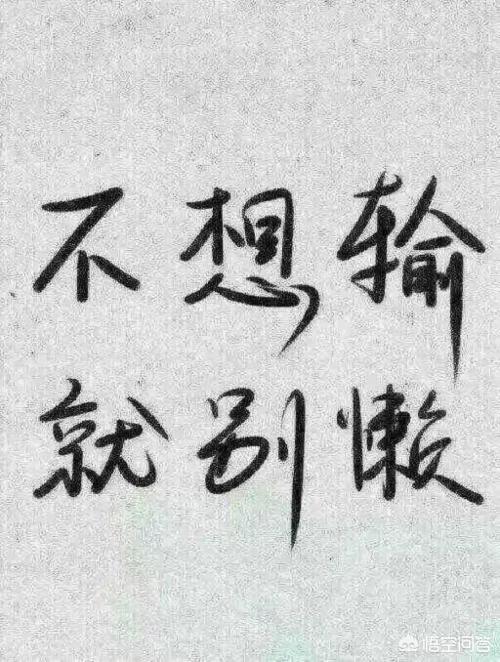 不想输
就别懒
悟空问答